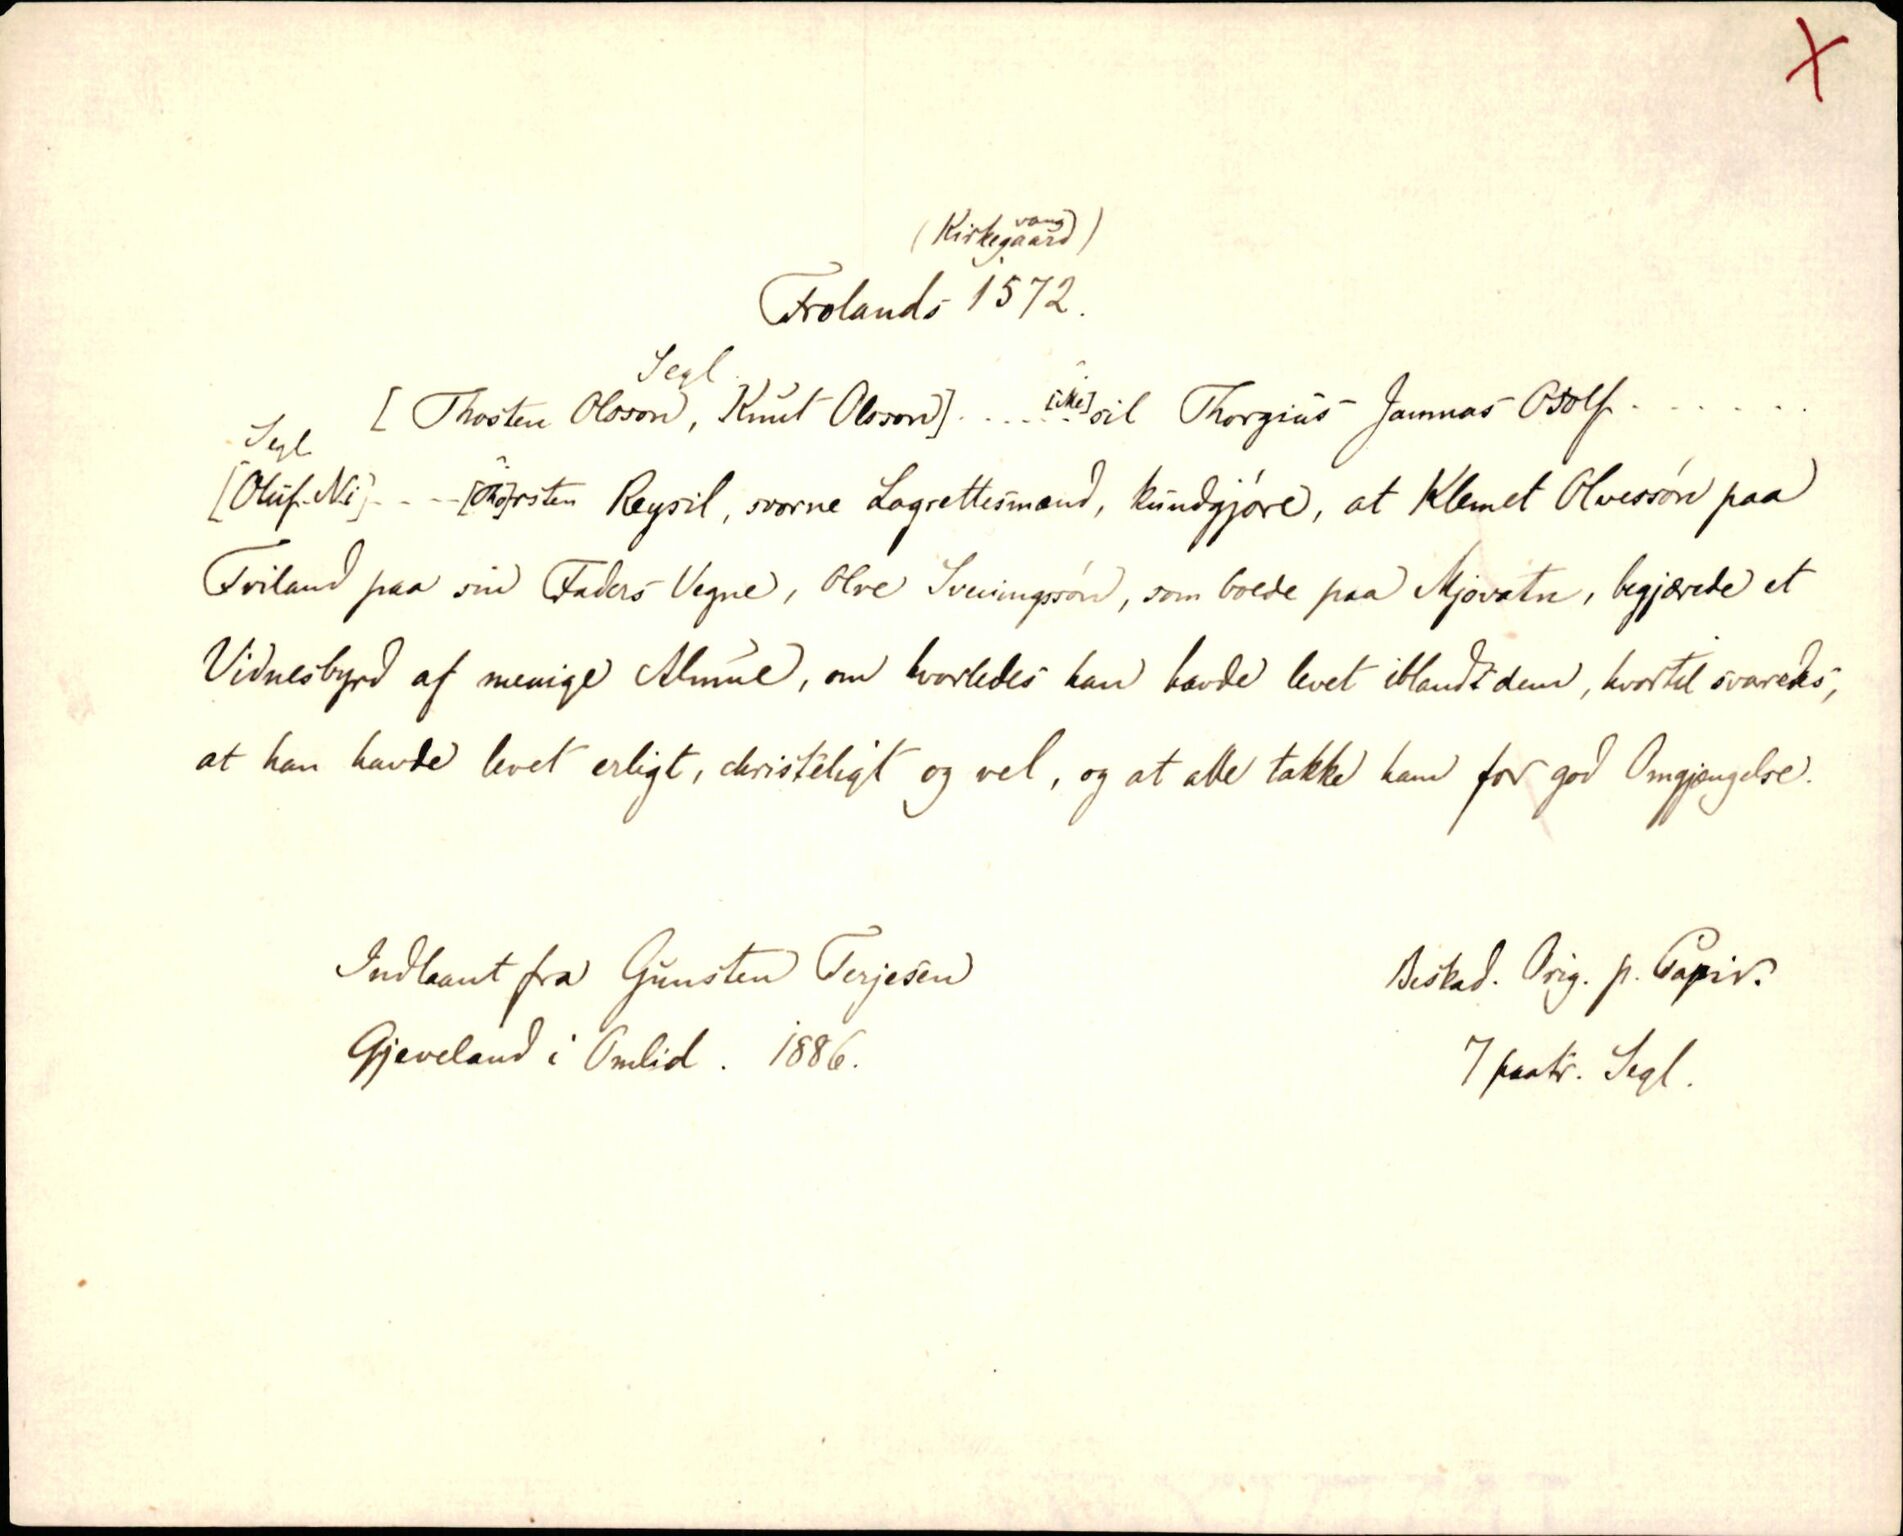 X
vang
(Kirkegaard)
Frolands 1572.
Segl
[Thosten Olsson, Knut Olsson] . . . . . . [Me]sil Thorgius Jammas Odolf . . . . . .
Segl
[Oluf Ni] . . . . [Tho]rsten Reysil, svorne Lagrettesmænd, kundgjøre, at Klemet Olvessøn paa
Friland paa sin Faders Vegne, Olve Sveinungssøn, som boede paa Mjovatn, begjærede et
Vidnesbyrd af menige Almue, om hvorledes han havde levet iblandt dem, hvortil svaredes,
at han havde levet erligt, christeligt og vel, og at alle takke ham for god Omgjængelse.
Indlaant fra Gunsten Terjesen
Gjeveland i Omlid. 1886.
Beskad. Orig. p. Papir.
7 paatr. Segl.